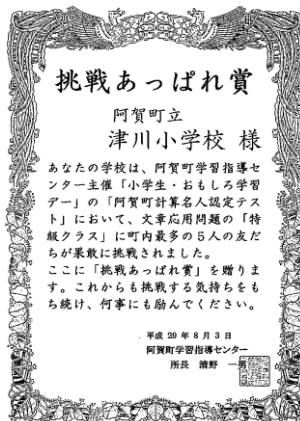 挑戦あっぱれ賞
阿賀町立
津川小学校 様
あなたの学校は、阿賀町学習指導セ
ンター主催「小学生・おもしろ学習
デー」の「阿賀町計算名人認定テス
ト」において、文章応用問題の「特
級クラス」に町内最多の5人の友だ
ちが果敢に挑戦されました。
ここに「挑戦あっぱれ賞」を贈りま
す。これからも挑戦する気持ちをも
ち続け、何事にも励んでください。
平成 29 年 8 月 3 日
阿賀町学習指導センター
所長 清野 一男